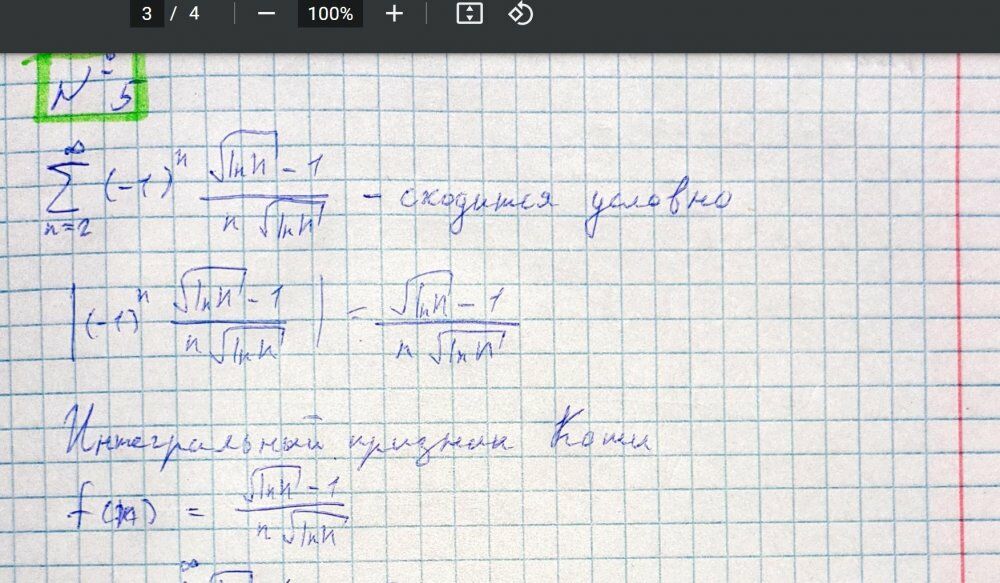 3 / 4 100%
№ 5
∑_{n=2}^{∞} (-1)^n (√(ln n) - 1)/(n √(ln n)) - сходится условно
|(-1)^n (√(ln n) - 1)/(n √(ln n))| = (√(ln n) - 1)/(n √(ln n))
Интегральный признак Коши
f(n) = (√(ln n) - 1)/(n √(ln n))